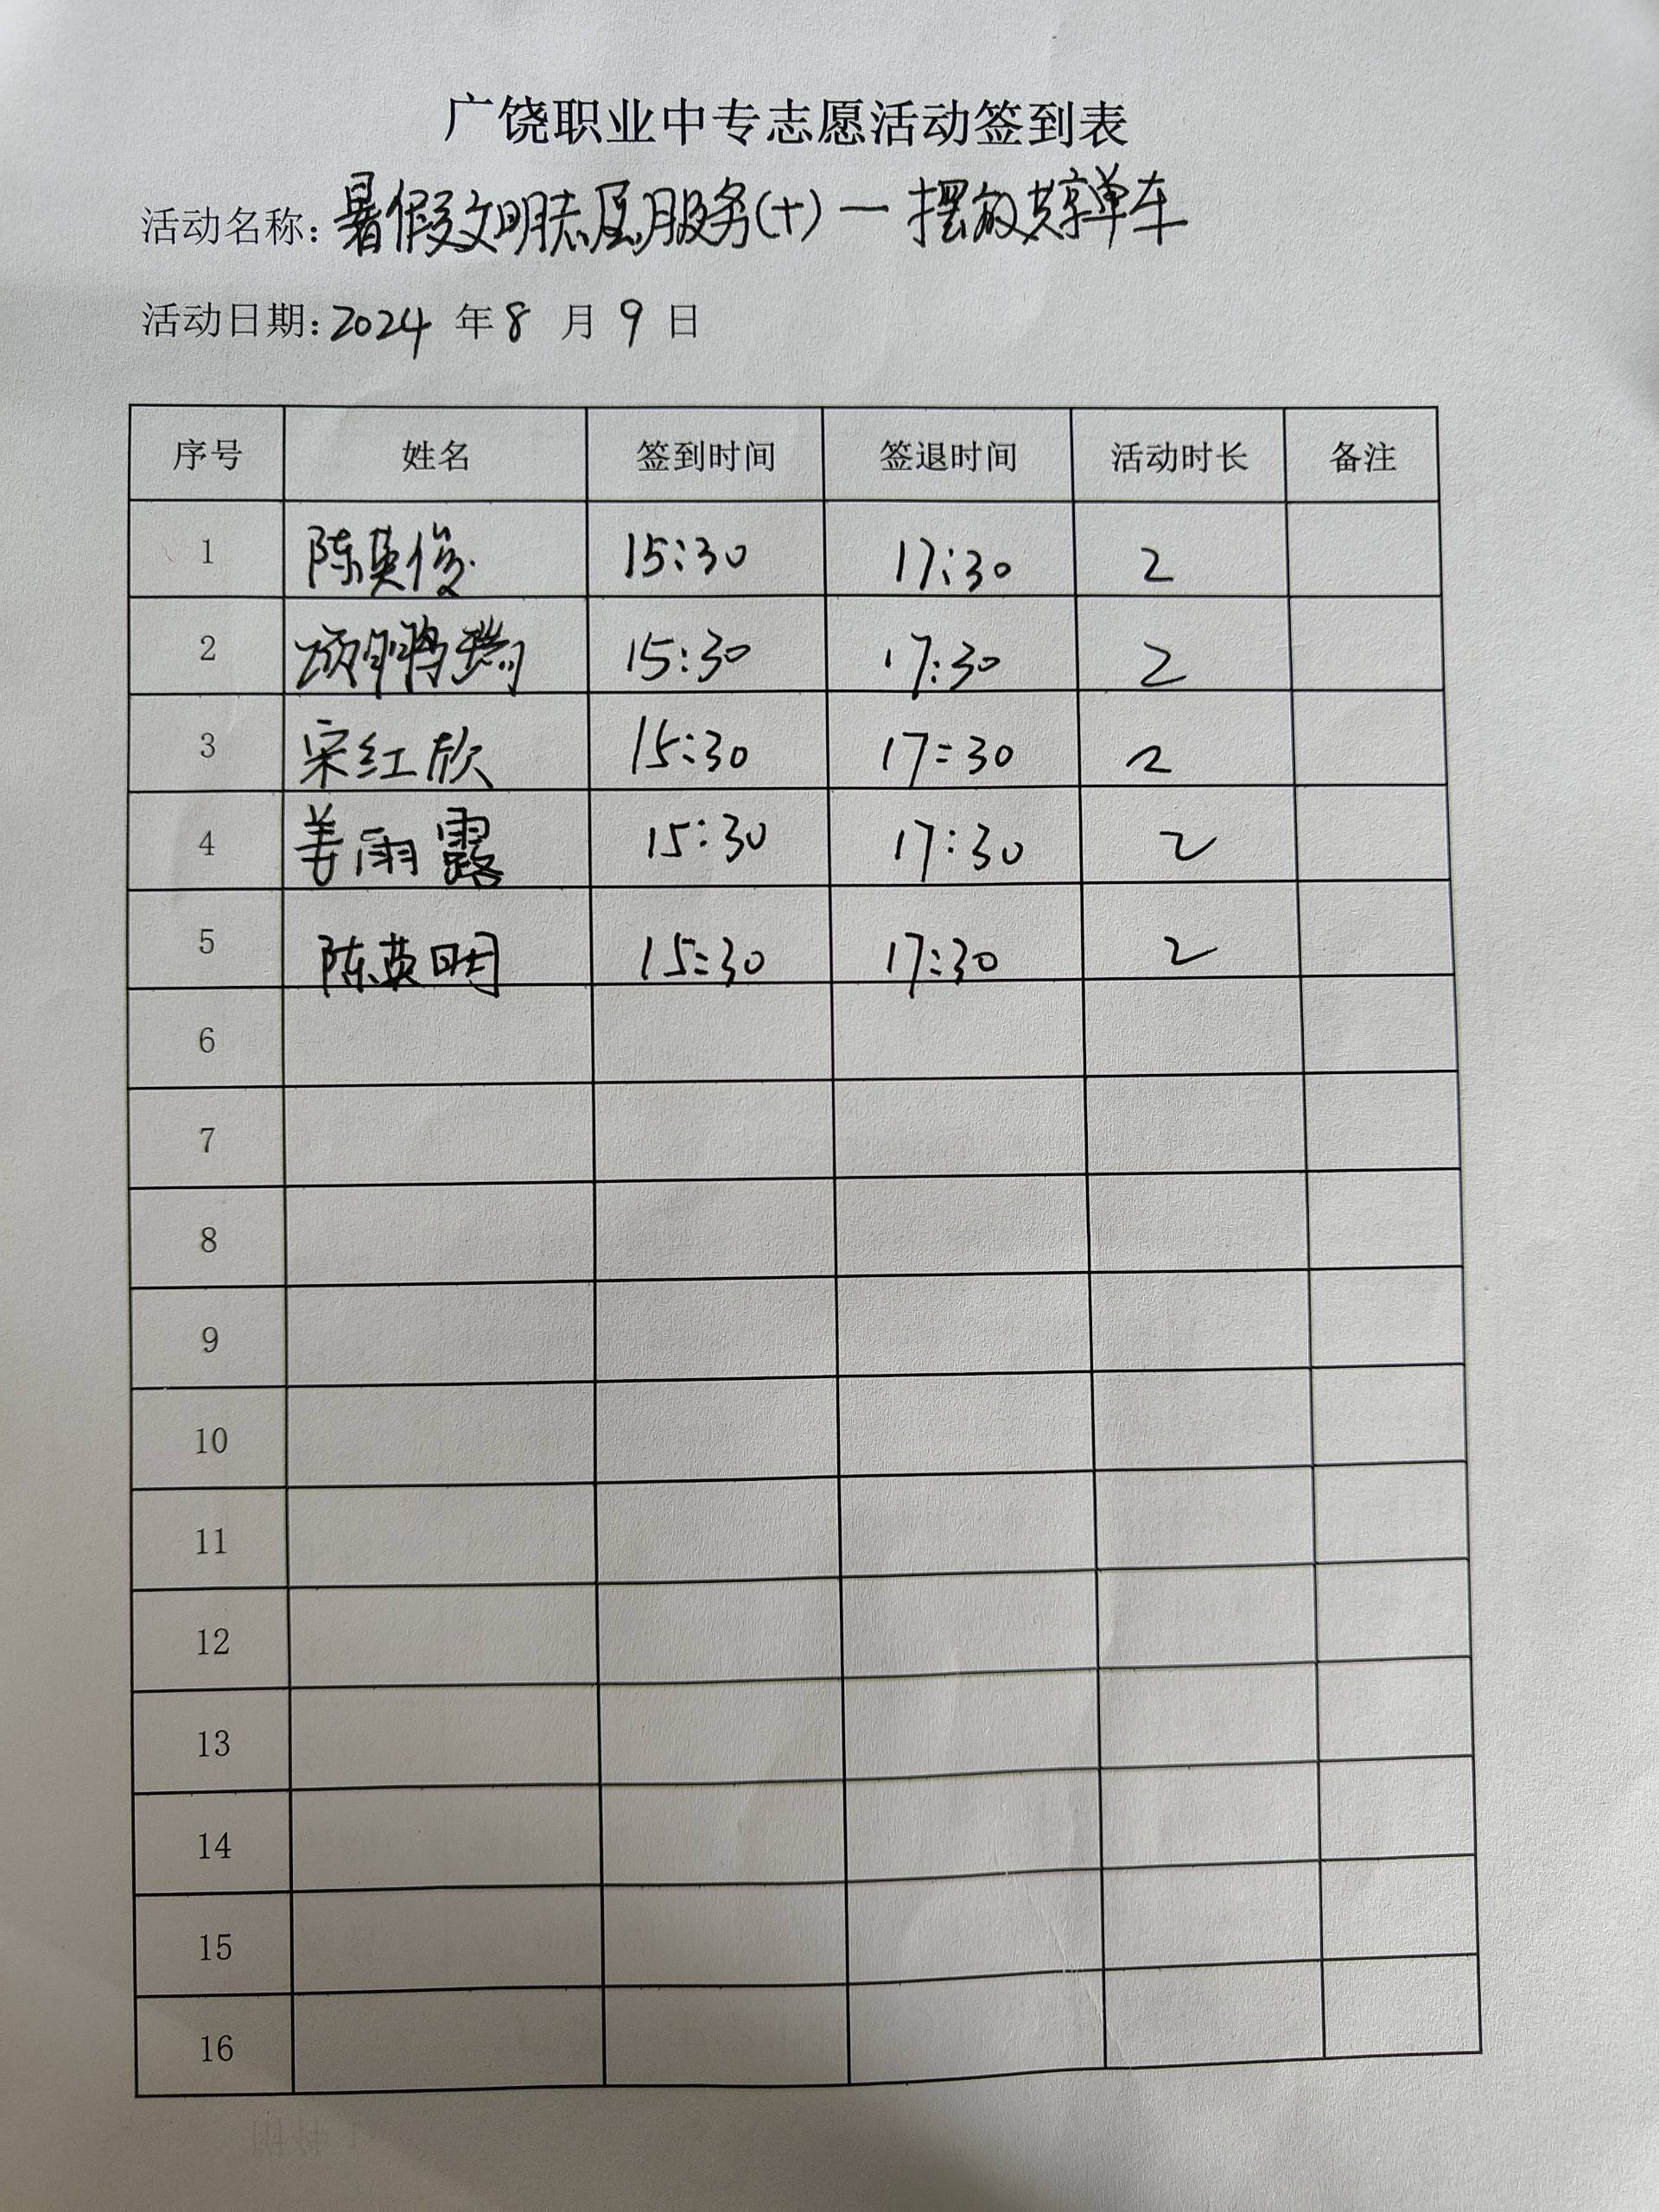 广饶职业中专志愿活动签到表
活动名称：暑假文明志愿服务(十)一摆放共享单车
活动日期：2024 年 8 月 9 日
序号 姓名 签到时间 签退时间 活动时长 备注
1 陈英俊 15:30 17:30 2
2 15:30 17:30 2
3 宋红欣 15:30 17:30 2
4 姜雨露 15:30 17:30 2
5 陈英明 15:30 17:30 2
6
7
8
9
10
11
12
13
14
15
16